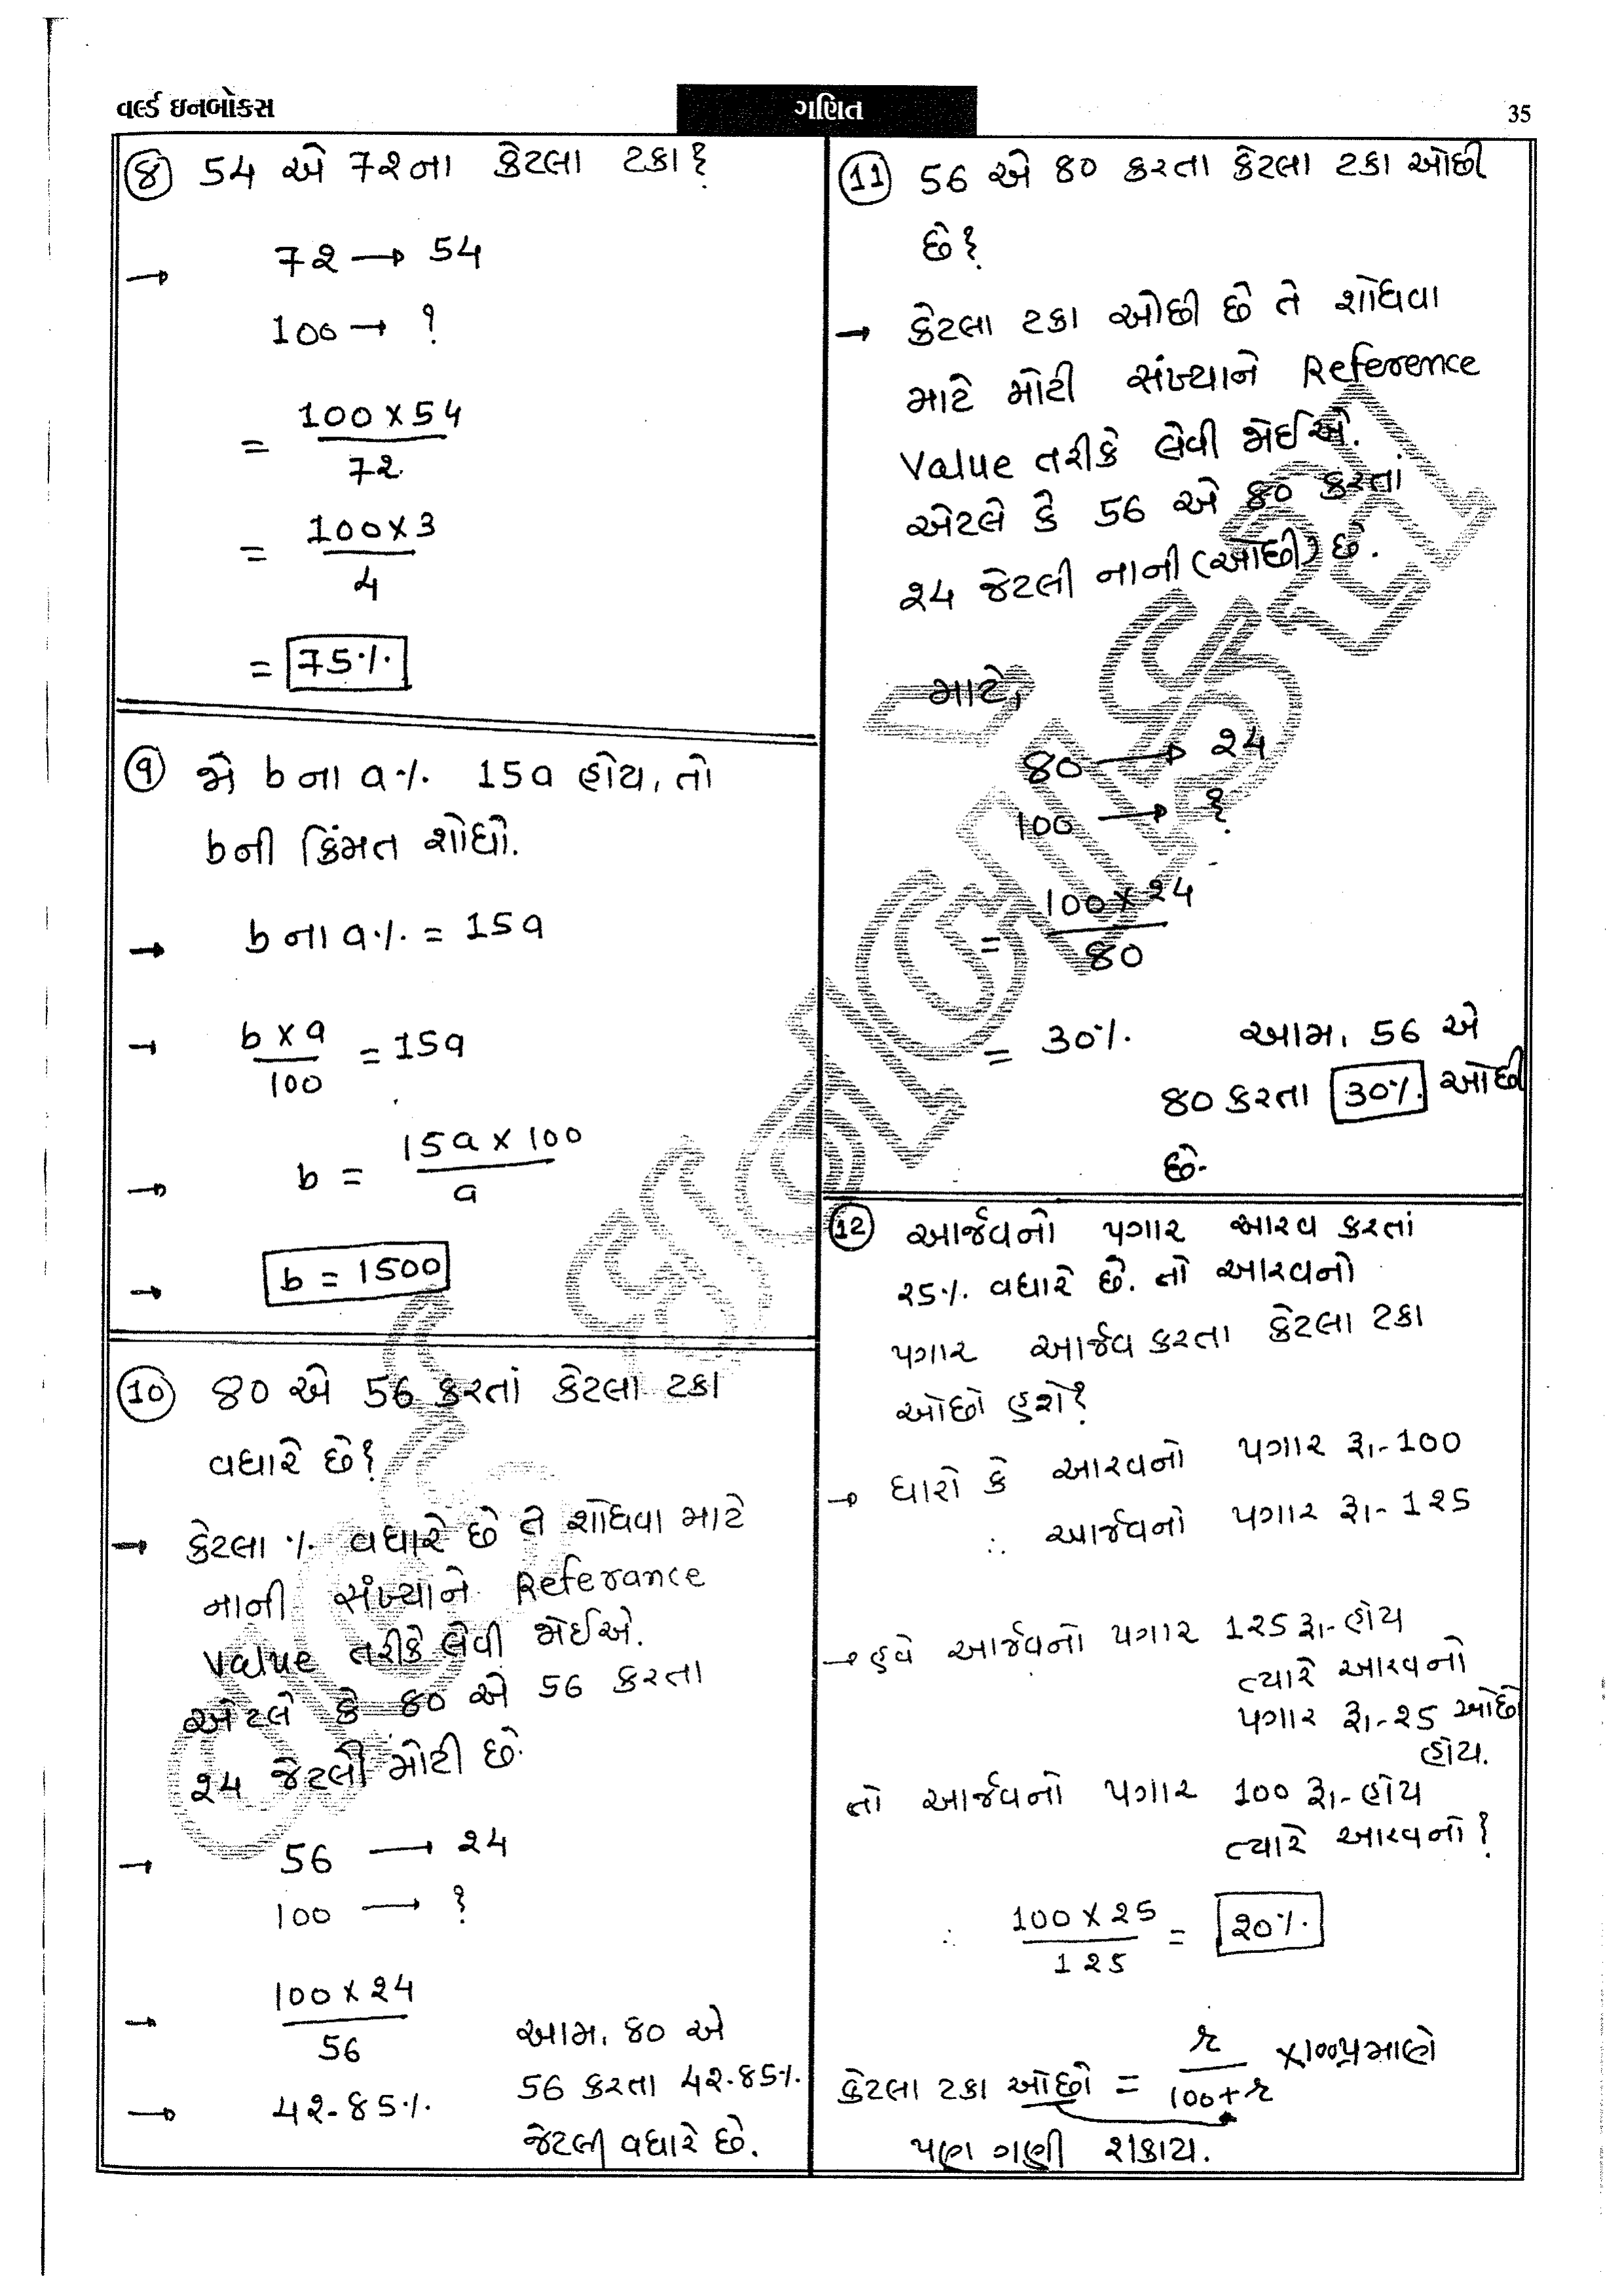 વર્લ્ડ ઇનબોક્સ
ગણિત
35
(8) 54 એ 72ના કેટલા ટકા?
→ 72 → 54
100 → ?
= 100 × 54 / 72
= 100 × 3 / 4
= 75%
(9) જો b ના a% 15a હોય, તો
bની કિંમત શોધો.
→ b ના a% = 15a
→ b × a / 100 = 15a
→ b = 15a × 100 / a
→ b = 1500
(10) 80 એ 56 કરતાં કેટલા ટકા
વધારે છે?
→ કેટલા % વધારે છે તે શોધવા માટે
નાની સંખ્યાને Referance
Value તરીકે લેવી જોઈએ.
એટલે કે 80 એ 56 કરતા
24 જેટલી મોટી છે.
→ 56 → 24
100 → ?
→ 100 × 24 / 56
→ 42.85%
આમ, 80 એ
56 કરતા 42.85%
જેટલી વધારે છે.
(11) 56 એ 80 કરતા કેટલા ટકા ઓછી
છે?
→ કેટલા ટકા ઓછી છે તે શોધવા
માટે મોટી સંખ્યાને Reference
Value તરીકે લેવી જોઈએ.
એટલે કે 56 એ 80 કરતાં
24 જેટલી નાની (ઓછી) છે.
માટે,
80 → 24
100 → ?
= 100 × 24 / 80
= 30% આમ, 56 એ
80 કરતા 30% ઓછી
છે.
(12) આર્જવનો પગાર આરવ કરતાં
25% વધારે છે. તો આરવનો
પગાર આર્જવ કરતા કેટલા ટકા
ઓછો હશે?
→ ધારો કે આરવનો પગાર રૂ.-100
∴ આર્જવનો પગાર રૂ.-125
→ હવે આર્જવનો પગાર 125 રૂ.-હોય
ત્યારે આરવનો
પગાર રૂ.-25 ઓછો
હોય.
તો આર્જવનો પગાર 100 રૂ.-હોય
ત્યારે આરવનો?
∴ 100 × 25 / 125 = 20%
કેટલા ટકા ઓછો = r / 100+r ×100 પ્રમાણે
પણ ગણી શકાય.